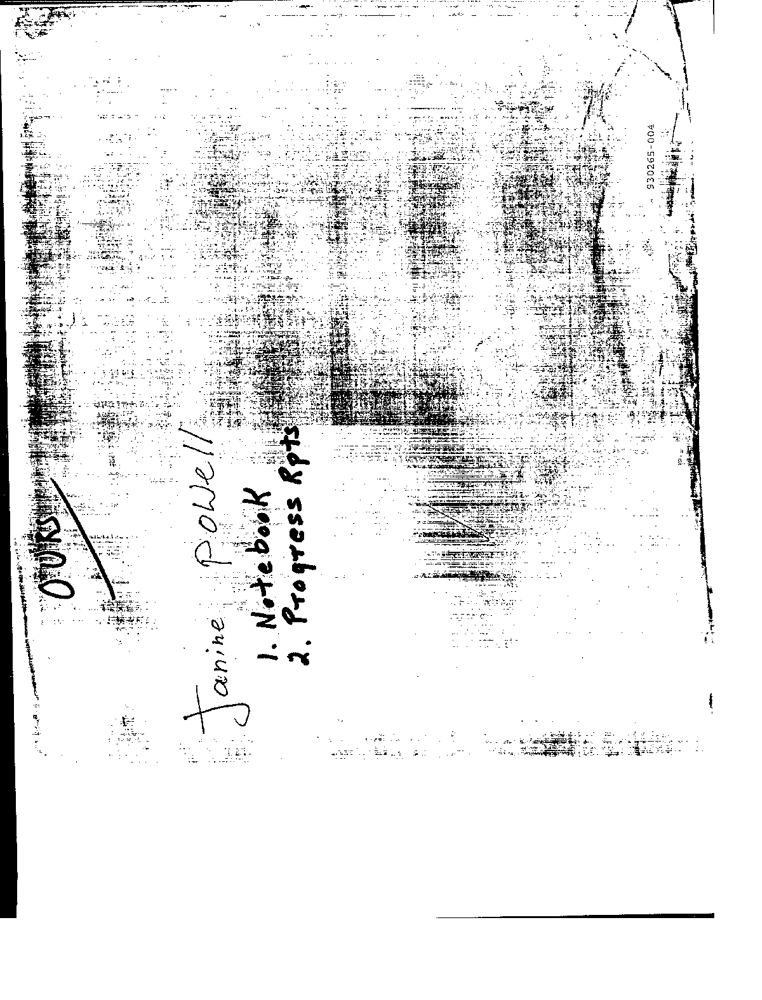 OURS
Janine Powell
1. Notebook
2. Progress Rpts
930265-004